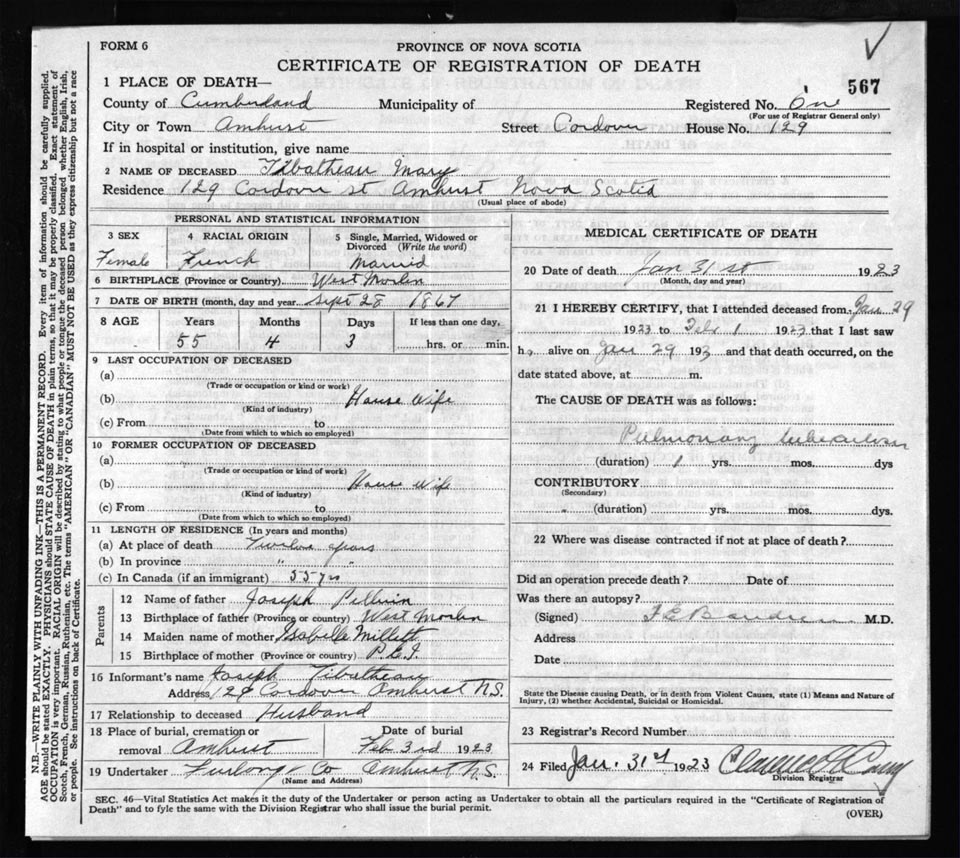 FORM 6
PROVINCE OF NOVA SCOTIA
CERTIFICATE OF REGISTRATION OF DEATH
567
1 PLACE OF DEATH—
County of Cumberland Municipality of Registered No. One
(For use of Registrar General only)
City or Town Amhurst Street Cordova House No. 129
If in hospital or institution, give name
2 NAME OF DECEASED Tibatheau Mary
Residence 129 Cordova st Amhurst Nova Scotia
(Usual place of abode)
PERSONAL AND STATISTICAL INFORMATION
3 SEX 4 RACIAL ORIGIN 5 Single, Married, Widowed or Divorced (Write the word)
Female French Married
6 BIRTHPLACE (Province or Country) West Morlin
7 DATE OF BIRTH (month, day and year) Sept 28 1867
8 AGE Years Months Days If less than one day,
55 4 3 hrs. or min.
9 LAST OCCUPATION OF DECEASED
(a)
(Trade or occupation or kind or work)
(b) House Wife
(Kind of industry)
(c) From to
(Date from which to which so employed)
10 FORMER OCCUPATION OF DECEASED
(a)
(Trade or occupation or kind of work)
(b) House Wife
(Kind of industry)
(c) From to
(Date from which to which so employed)
11 LENGTH OF RESIDENCE (In years and months)
(a) At place of death Twelve years
(b) In province " "
(c) In Canada (if an immigrant) 55 yrs
Parents
12 Name of father Joseph
13 Birthplace of father (Province or country) West Morlin
14 Maiden name of mother Isabelle Millett
15 Birthplace of mother (Province or country) P.E.I
16 Informant's name Joseph Tibatheau
Address 129 Cordova Amhurst N.S.
17 Relationship to deceased Husband
18 Place of burial, cremation or Date of burial
removal Amhurst Feb 3rd 1923
19 Undertaker Furlong & Co Amhurst N.S.
(Name and Address)
MEDICAL CERTIFICATE OF DEATH
20 Date of death Jan 31st 1923
(Month, day and year)
21 I HEREBY CERTIFY, that I attended deceased from Jan 29
1923 to Feb 1 1923 that I last saw
h alive on Jan 29 192 and that death occurred, on the
date stated above, at m.
The CAUSE OF DEATH was as follows:
Pulmonary tuberculosis
(duration) 1 yrs. mos. dys
CONTRIBUTORY
(Secondary)
" (duration) yrs. mos. dys.
22 Where was disease contracted if not at place of death?
Did an operation precede death? Date of
Was there an autopsy?
(Signed) M.D.
Address
Date
State the Disease causing Death, or in death from Violent Causes, state (1) Means and Nature of
Injury, (2) whether Accidental, Suicidal or Homicidal.
23 Registrar's Record Number
24 Filed Jan. 31st 1923
Division Registrar
SEC. 46—Vital Statistics Act makes it the duty of the Undertaker or person acting as Undertaker to obtain all the particulars required in the "Certificate of Registration of
Death" and to fyle the same with the Division Registrar who shall issue the burial permit.
(OVER)
N.B.—WRITE PLAINLY WITH UNFADING INK—THIS IS A PERMANENT RECORD. Every item of information should be carefully supplied.
AGE should be stated EXACTLY. PHYSICIANS should STATE CAUSE OF DEATH in plain terms, so that it may be properly classified. Exact statement of
OCCUPATION is very important. RACIAL ORIGIN will be described by stating to what people or tongue the deceased person belonged whether English, Irish,
Scotch, French, German, Russian, Ruthenian, etc. The terms "AMERICAN" OR "CANADIAN" MUST NOT BE USED as they express citizenship but not a race
or people. See instructions on back of Certificate.